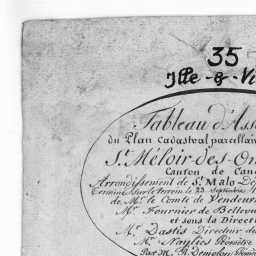 35
Ille-&-Vi
Tableau d'Ass
du Plan cadastral parcellai
St. Méloir-des-On
Canton de Canc
Arrondissement de St. Malo Dé
Terminé sur le terrain le 23 septembre
de M. le Comte de Vendeuv
Mr. Fournier de Bellevu
et sous la Direct
Mr. Dastis Directeur d
Mr. Naylies Géomètre
Par M. Géom